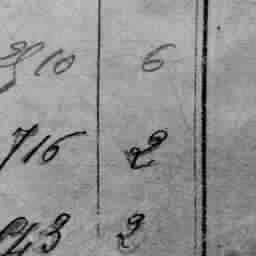 10 6
716 2
43 2